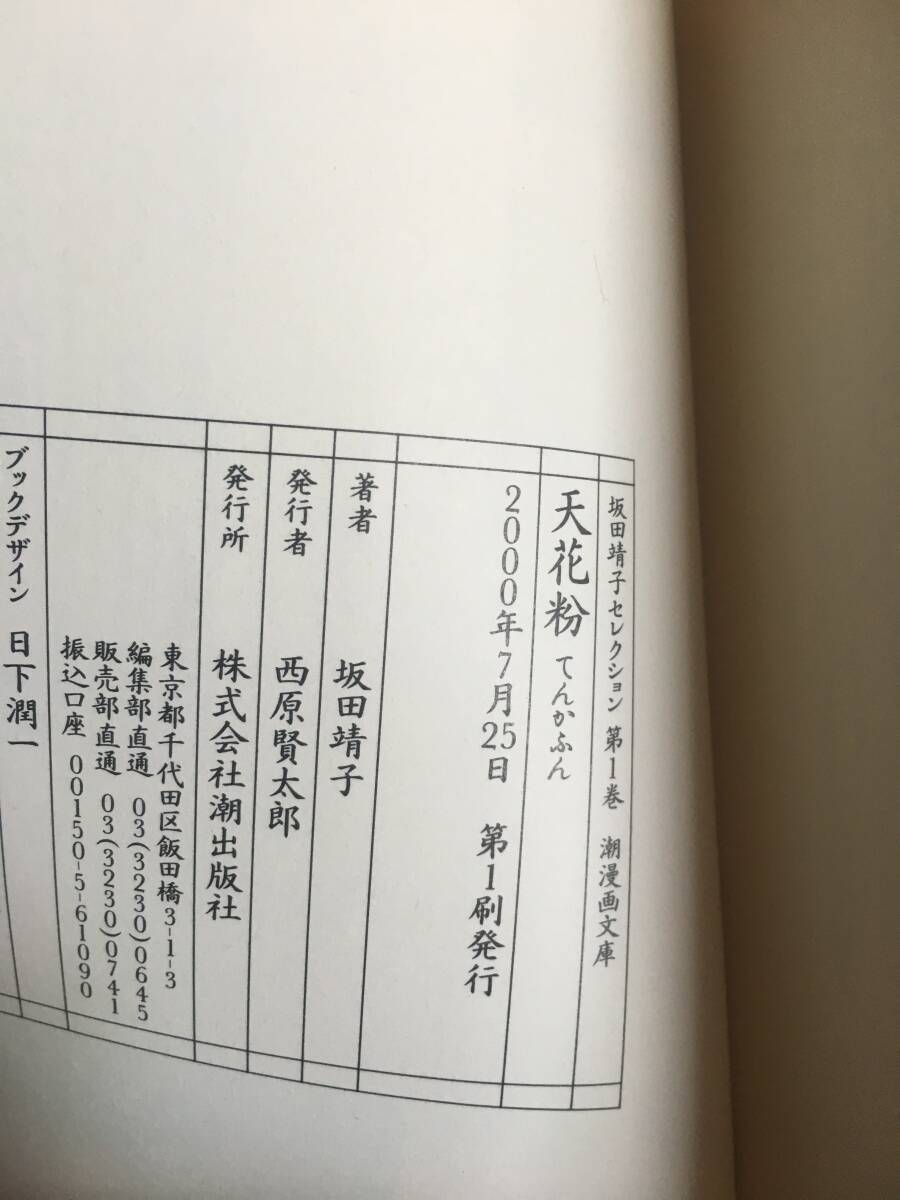 坂田靖子セレクション 第1巻 潮漫画文庫
天花粉 てんかふん
2000年7月25日 第1刷発行
著者 坂田靖子
発行者 西原賢太郎
発行所 株式会社潮出版社
東京都千代田区飯田橋3-1-3
編集部直通 03(3230)0645
販売部直通 03(3230)0741
振込口座 00150-5-61090
ブックデザイン 日下潤一